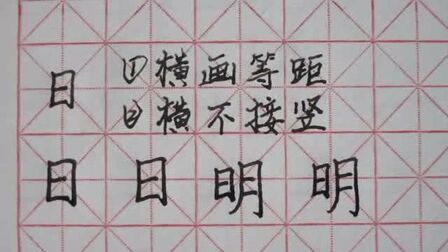 日 ①横画等距
②横不接竖
日 日 明 明